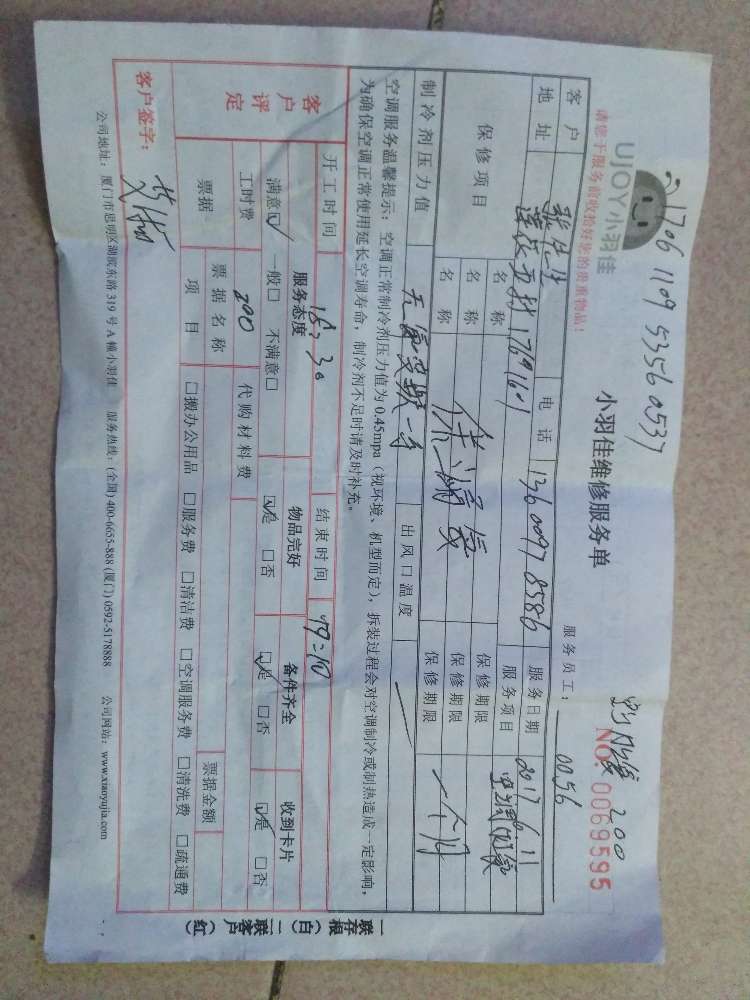 1706 1109 5356 0537
UJOY小羽佳
小羽佳维修服务单
200
NO: 0069595
请您于服务前收拾好您的贵重物品!
服务员工: 0056
客户 先生 电话 13600978586 服务日期 2017.6.11
地址 1769160 服务项目
保修项目 名称 保修期限 一个月
名称 保修期限
名称 保修期限
制冷剂压力值 出风口温度
空调服务温馨提示: 空调正常制冷剂压力值为 0.45mpa (视环境、机型而定), 拆装过程会对空调制冷或制热造成一定影响,
为确保空调正常使用延长空调寿命, 制冷剂不足时请及时补充。
开工时间 18:30 结束时间 19:10
客户评定 服务态度 物品完好 备件齐全 收到卡片
满意☑ 一般□ 不满意□ ☑是 □否 ☑是 □否 ☑是 □否
工时费 200 代购材料费
票据 票据名称 票据金额
项目 □搬办公用品 □服务费 □清洁费 □空调服务费 □清洗费 □疏通费
客户签字:
公司地址: 厦门市思明区湖滨东路 319 号 A 幢小羽佳 服务热线: (全国) 400-6655-888 (厦门) 0592-5178888 公司网站: www.xiaoyujia.com
一联存根(白) 二联客户(红)